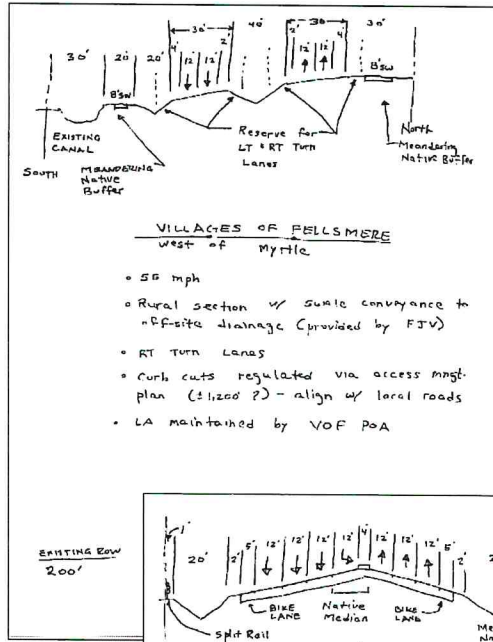 30' 20' 20' 30' 40' 30 30'
4' 12' 12' 2' 2' 12' 12' 4'
8'SW 8'SW
EXISTING
CANAL
SOUTH
MEANDERING
Native
Buffer
Reserve for
LT & RT Turn
Lanes
North
Meandering
Native Buffer
VILLAGES OF FELLSMERE
West of Myrtle
• 55 mph
• Rural section w/ swale conveyance to
off-site drainage (provided by FJV)
• RT Turn Lanes
• Curb cuts regulated via access mngt.
plan (±1,200' ?) - align w/ local roads
• LA maintained by VOF POA
EXISTING ROW
200'
1'
20' 2' 5' 12' 12' 12' 12' 4' 12' 12' 12' 5' 2'
BIKE
LANE
Native
Median
BIKE
LANE
Split Rail